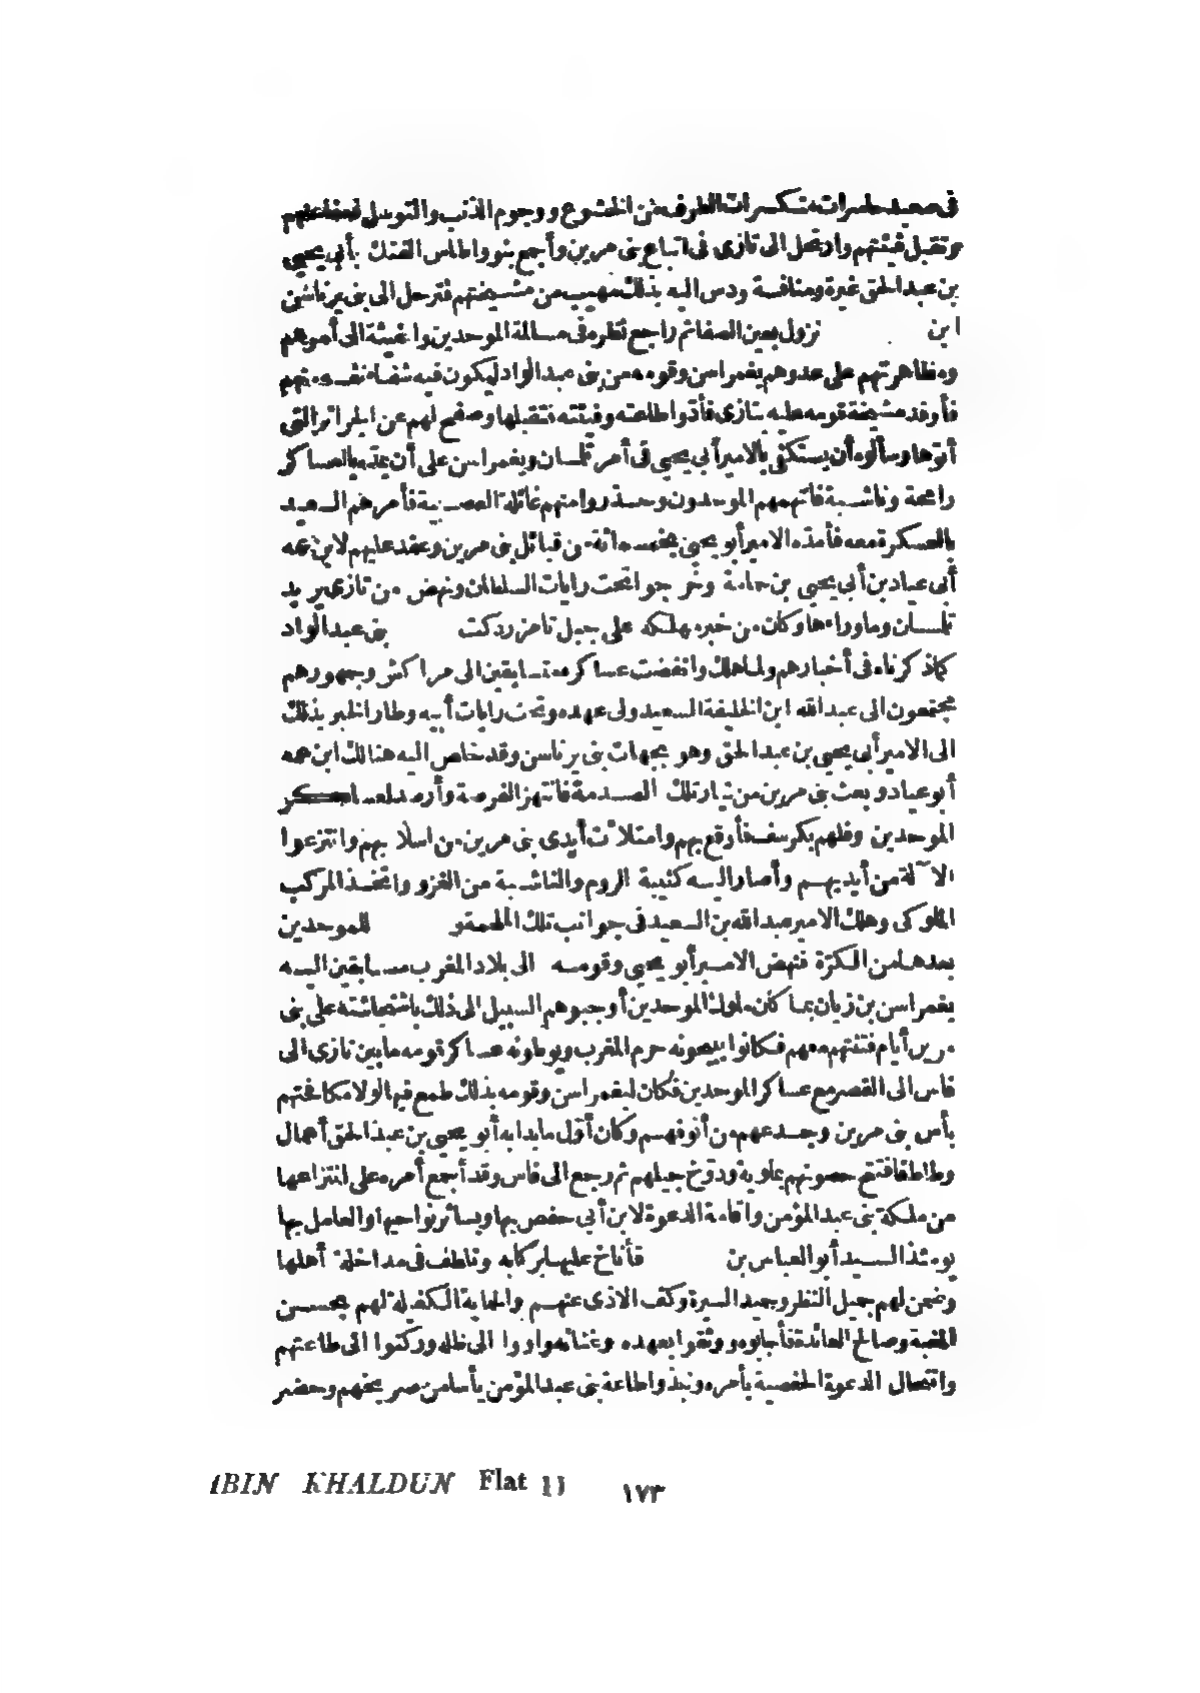 فى صعيد حاسرات منكسرات الطرف من الخشوع ووجوم الذنب والتوسل
وتقبل فيئتهم وارتحل الى تازى فى اتباع بنى مرين وأجمع بنو واطاس الفتك بأبى يحيى
بن عبد الحق غيرة ومنافسة ودس اليه بذلك مهيب من مشيختهم فترحل الى بنى يزناسن
ابن نزول بعين الصفا ثم راجع نظره فى مسالمة الموحدين والفيئة الى أمرهم
ومظاهرتهم على عدوهم يغمراسن وقومه من بنى عبد الواد ليكون فيه شفاء نفسه منهم
فأوفد مشيخة قومه عليه بتازى فأدوا طاعته وفيئته فتقبلها وصفح لهم عن الجرائر التى
أتوها وسألوه أن يستكفى بالامير أبى يحيى فى أمر تلمسان ويغمراسن على أن يمده بالعساكر
رامحة وناشبة فاتهمهم الموحدون وحذروا منهم غائلة العصبية فأمرهم السعيد
بالعسكرة معه فأمده الامير أبو يحيى بخمسمائة من قبائل بنى مرين وعقد عليهم لابن عمه
أبى عياد بن أبى يحيى بن حمامة وخرجوا تحت رايات السلطان ونهض من تازى يريد
تلمسان وما وراءها وكان من خبره مهلكه على جبل تامزردكت بنى عبد الواد
كما ذكرناه فى أخبارهم ولما هلك وانفضت عساكره متسابقين الى مراكش وجمهورهم
مجتمعون الى عبد الله ابن الخليفة السعيد ولى عهده وتحت رايات أبيه وطار الخبر بذلك
الى الامير أبى يحيى بن عبد الحق وهو بجهات بنى يزناسن وقد خلص اليه هنالك ابن عمه
أبو عياد وبعث بنى مرين من تيار تلك الصدمة فانتهز الفرصة وأرصد لعساكر
الموحدين وفلهم بكرسف فأوقع بهم وامتلأت أيدى بنى مرين من اسلابهم وانتزعوا
الآلة من أيديهم وأصار اليه كتيبة الروم والناشبة من الغزو واتخذ المركب
الملوكى وهلك الامير عبد الله بن السعيد فى جوانب تلك الملحمة و للموحدين
بعدها من الكرة فنهض الامير أبو يحيى وقومه الى بلاد المغرب مسابقين اليه
يغمراسن بن زيان بما كان ملوك الموحدين أوجبوهم السبيل الى ذلك باستجاشته على بنى
مرين أيام فتنتهم معهم فكانوا يبيحونه حرم المغرب ويوطؤنه عساكر قومه ما بين تازى الى
فاس الى القصر مع عساكر الموحدين فكان ليغمراسن وقومه بذلك طمع فيها لولا مكافحتهم
بأس بنى مرين وجدعهم من أنوفهم وكان أول ما بدا به أبو يحيى بن عبد الحق أعمال
وطاط فافتتح حصونهم بملوية ودوخ جبلهم ثم رجع الى فاس وقد أجمع أمره على انتزاعها
من ملكة بنى عبد المؤمن واقامة الدعوة لابن أبى حفص بها وبسائر نواحيها والعامل بها
يومئذ السيد أبو العباس بن فأناخ عليها بركابه وتلطف فى مداخلة أهلها
وضمن لهم جميل النظر وحميد السيرة وكف الاذى عنهم والحماية الكفيلة لهم بحسن
المغبة وصالح العائدة فأجابوه ووثقوا بعهده وغنائه وأووا الى ظله وركنوا الى طاعتهم
وانتحال الدعوة الحفصية بأمره ونبذوا طاعة بنى عبد المؤمن يأسا من صريخهم وحضر
IBIN KHALDUN Flat 11 ١٧٣